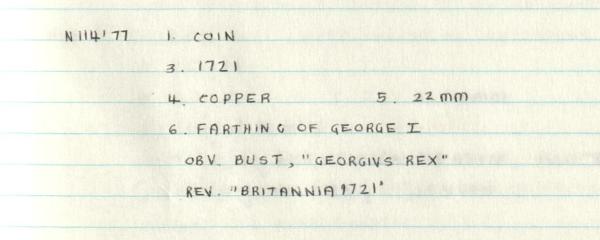 N114'77 1. COIN
3. 1721
4. COPPER 5. 22mm
6. FARTHING OF GEORGE I
OBV. BUST, "GEORGIVS REX"
REV. "BRITANNIA 1721"